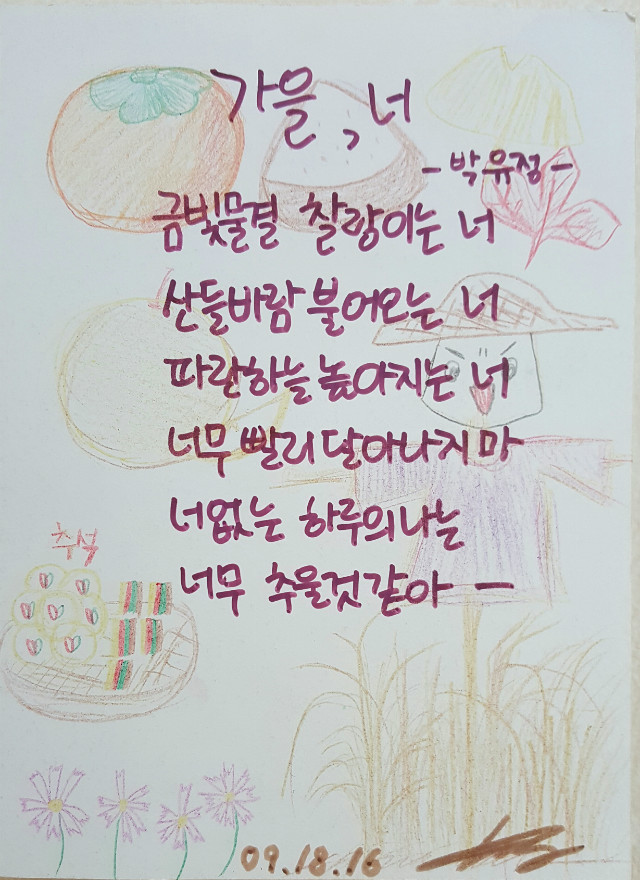 가을, 너
- 박유정 -
금빛물결 찰랑이는 너
산들바람 불어오는 너
파란하늘 높아지는 너
너무 빨리 달아나지 마
너 없는 하루의 나는
너무 추울것 같아 -
추석
09.18.16